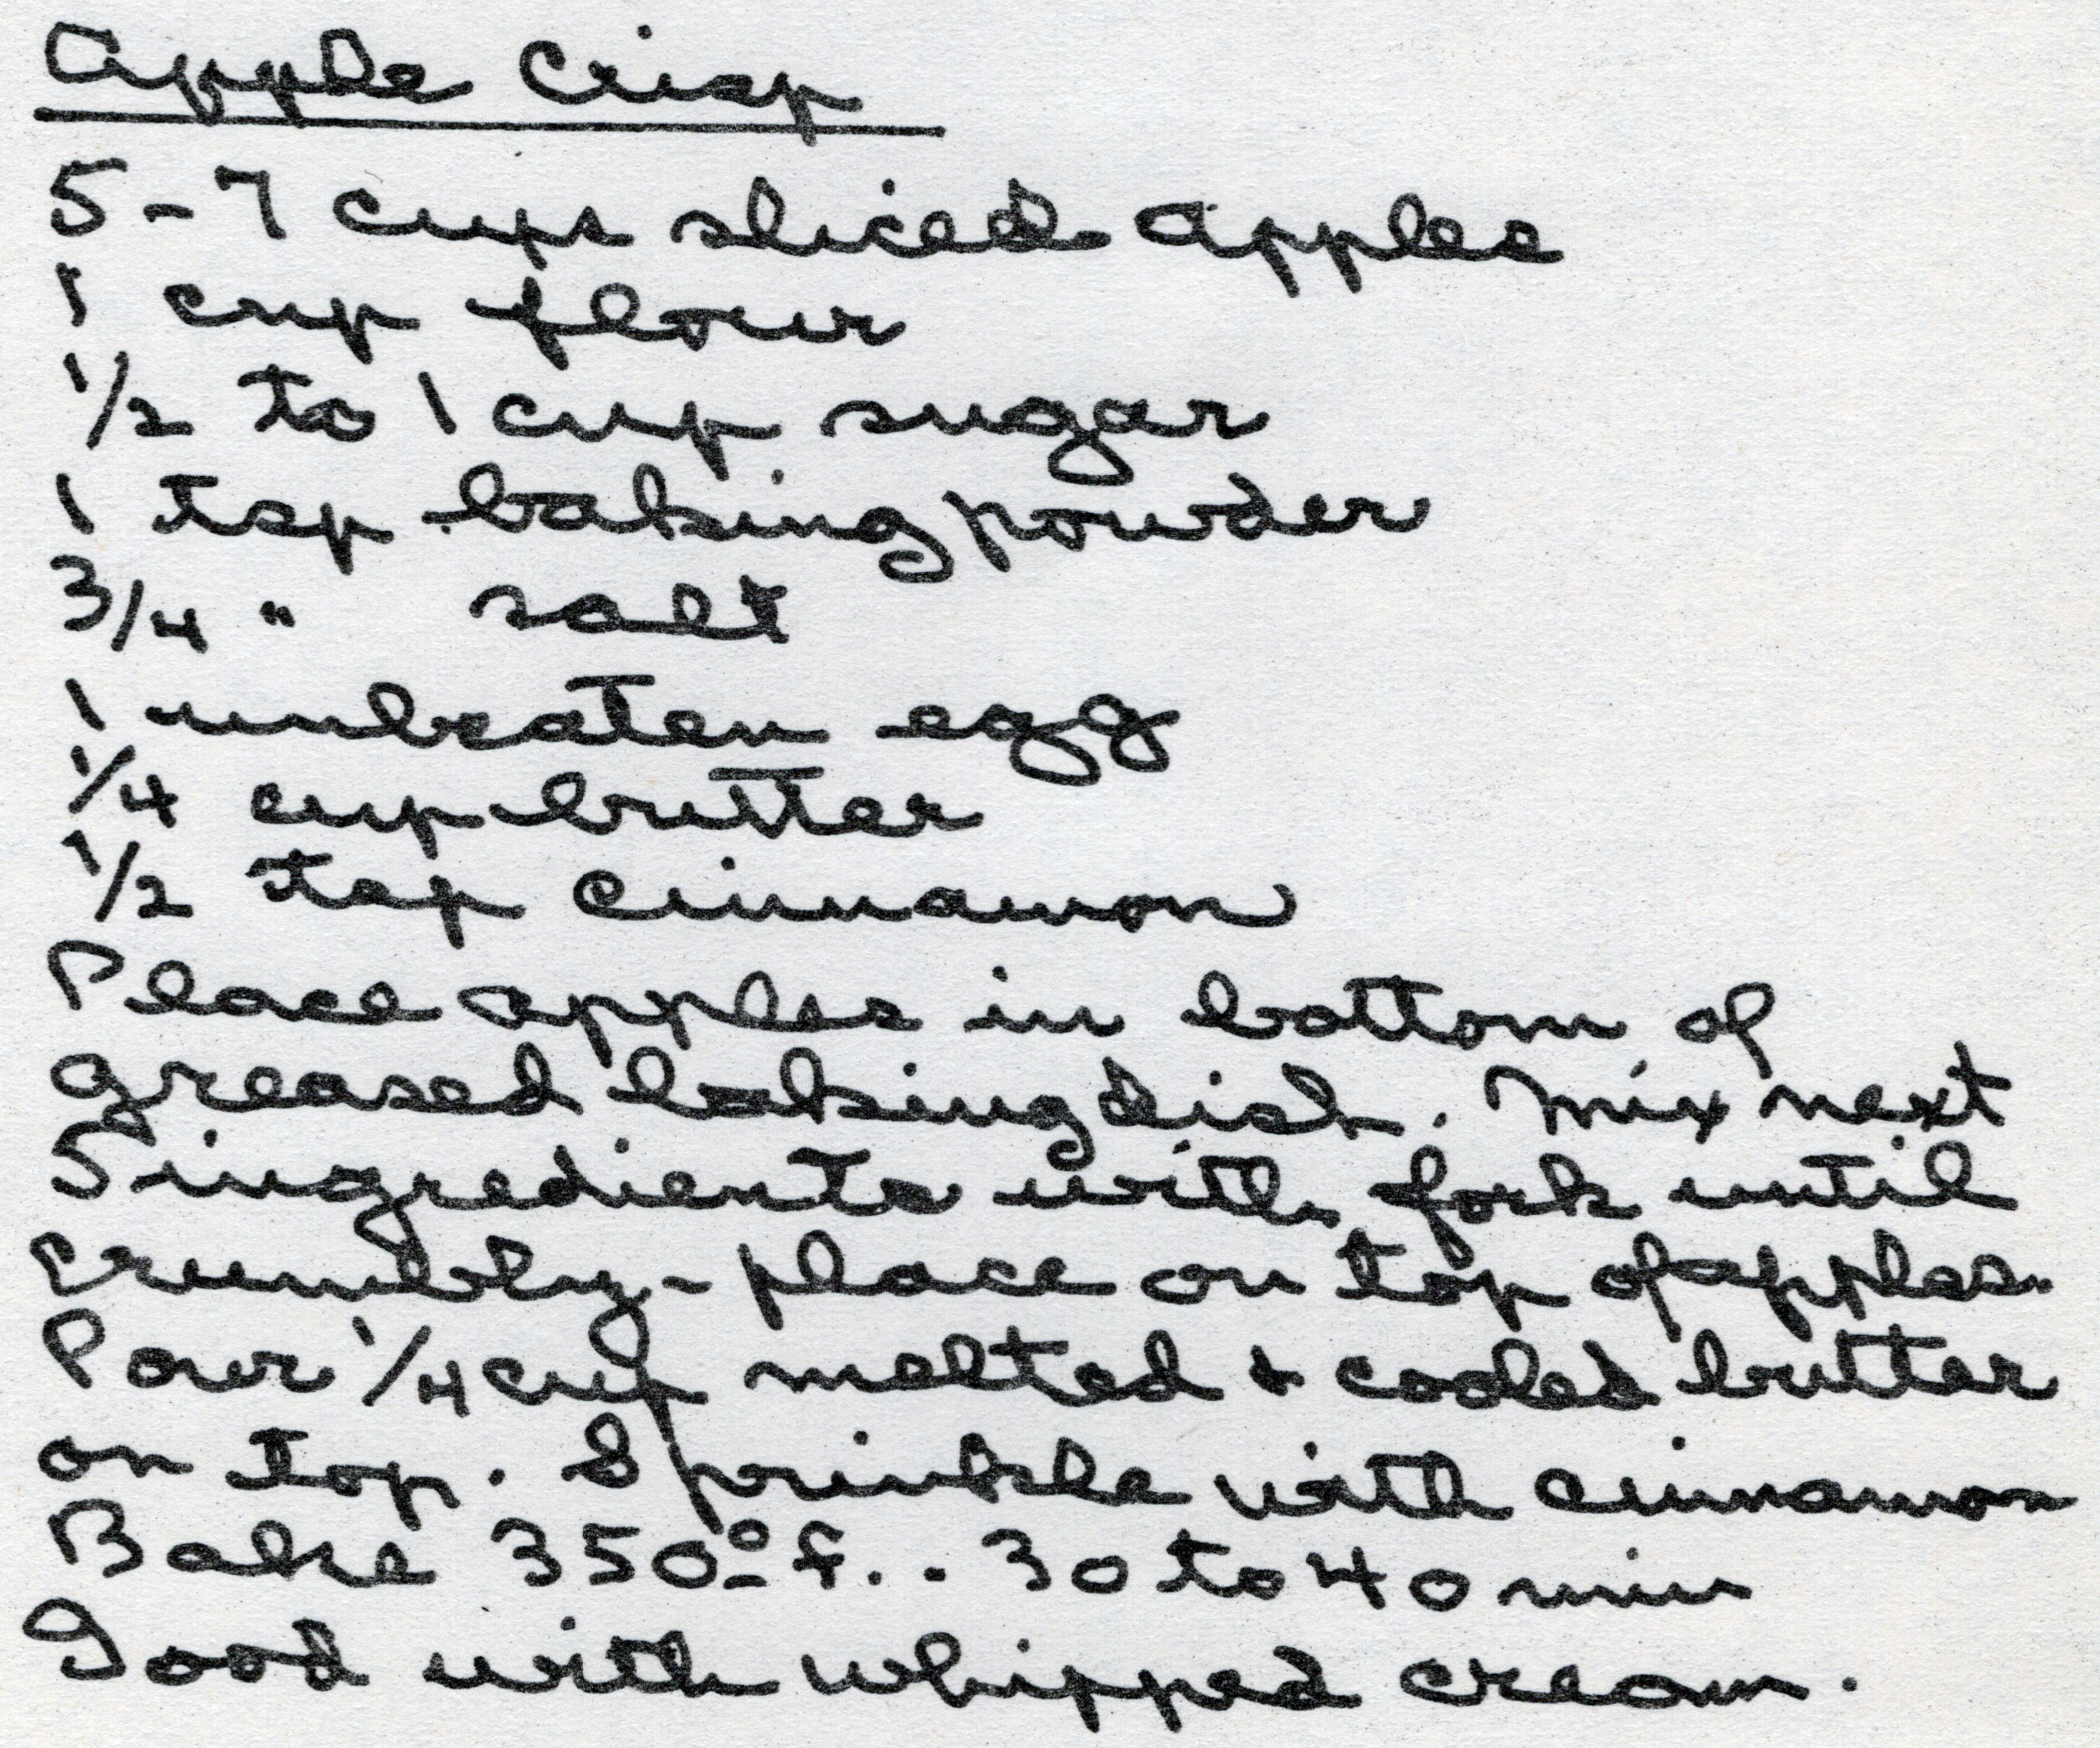 Apple Crisp
5-7 cups sliced apples
1 cup flour
1/2 to 1 cup sugar
1 tsp baking powder
3/4 " salt
1 unbeaten egg
1/4 cup butter
1/2 tsp cinnamon
Place apples in bottom of
greased baking dish. Mix next
5 ingredients with fork until
crumbly - place on top of apples.
Pour 1/4 cup melted + cooled butter
on top. Sprinkle with cinnamon
Bake 350° F.. 30 to 40 min
Good with whipped cream.